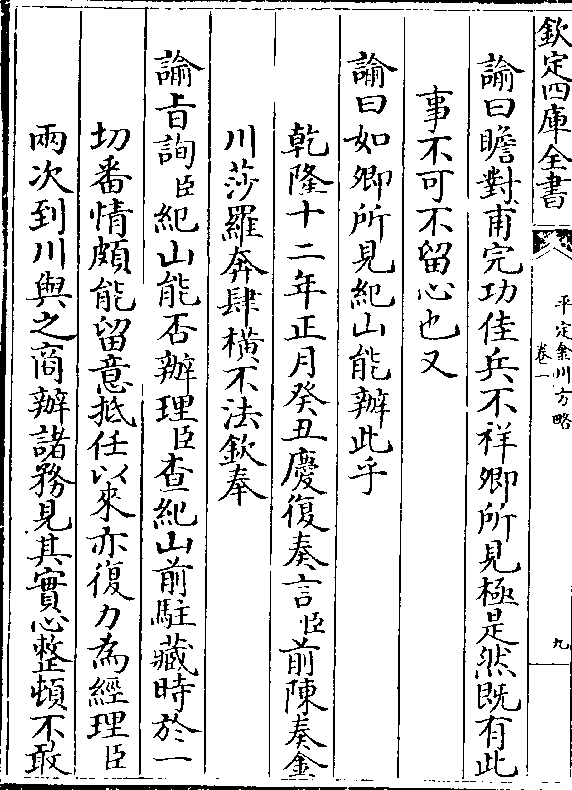 欽定四庫全書
平定金川方略
卷一
九
諭曰瞻對甫完功佳兵不祥卿所見極是然既有此
事不可不留心也又
諭曰如卿所見紀山能辦此乎
乾隆十二年正月癸丑慶復奏言臣前陳奏金
川莎羅奔肆橫不法欽奉
諭旨詢臣紀山能否辦理臣查紀山前駐藏時於一
切番情頗能留意抵任以來亦復力為經理臣
兩次到川與之商辦諸務見其實心整頓不敢